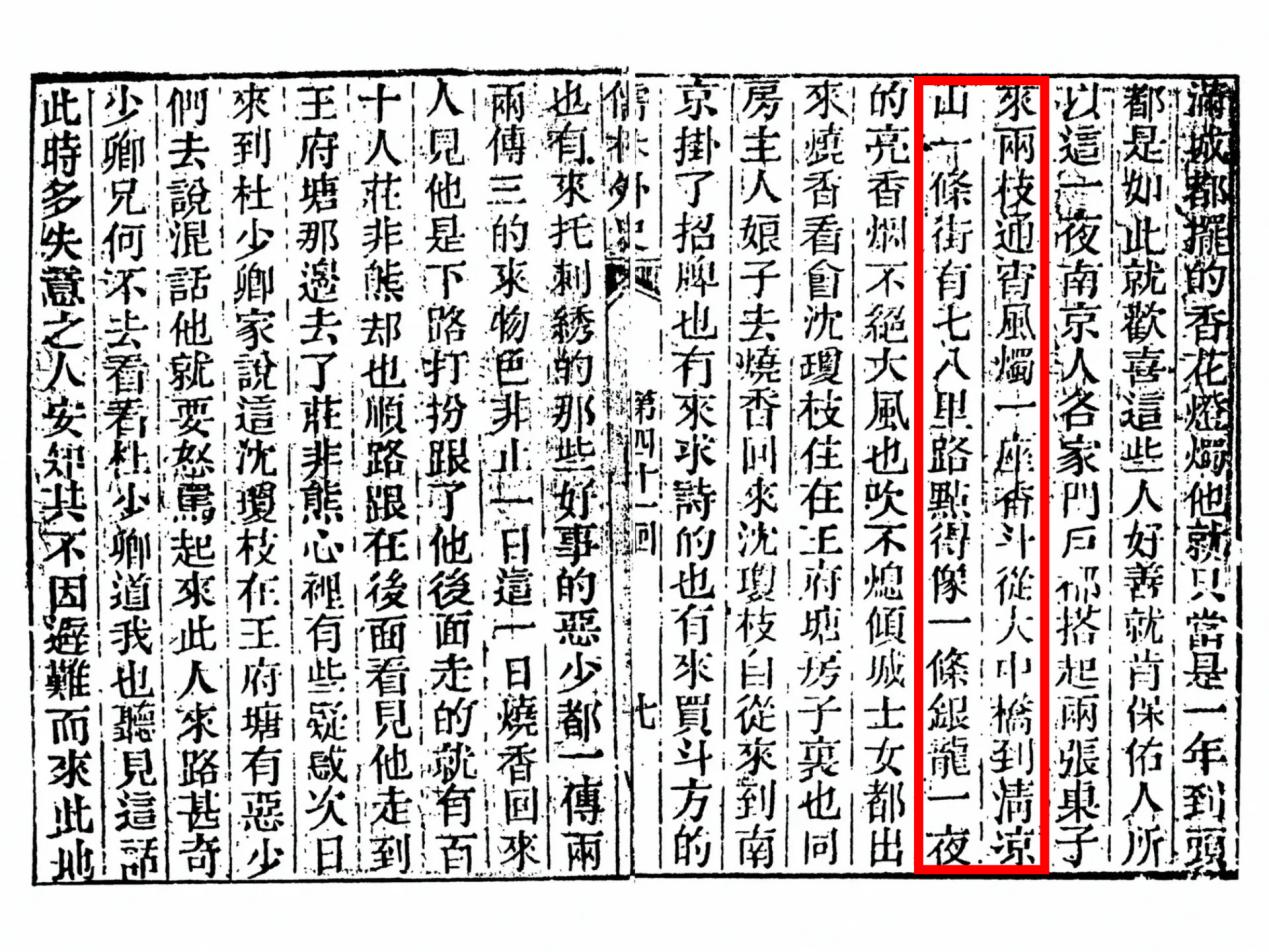 滿城都擺的香花燈燭他就只當是一年到頭
都是如此就歡喜這些人好善就肯保佑人所
以這一夜南京人各家門戶都搭起兩張桌子
來兩枝通宵風燭一座香斗從大中橋到清凉
山一條街有七八里路點得像一條銀龍一夜
的亮香烟不絕大風也吹不熄傾城士女都出
來燒香看會沈瓊枝住在王府塘房子裏也同
房主人娘子去燒香回來沈瓊枝自從來到南
京掛了招牌也有來求詩的也有來買斗方的
儒林外史
第四十一回
七
也有來托刺綉的那些好事的惡少都一傳兩
兩傳三的來物色非止一日這一日燒香回來
人見他是下路打扮跟了他後面走的就有百
十人莊非熊却也順路跟在後面看見他走到
王府塘那邊去了莊非熊心裡有些疑惑次日
來到杜少卿家說這沈瓊枝在王府塘有惡少
們去說混話他就要怒罵起來此人來路甚奇
少卿兄何不去看看杜少卿道我也聽見這話
此時多失意之人安知其不因避難而來此地